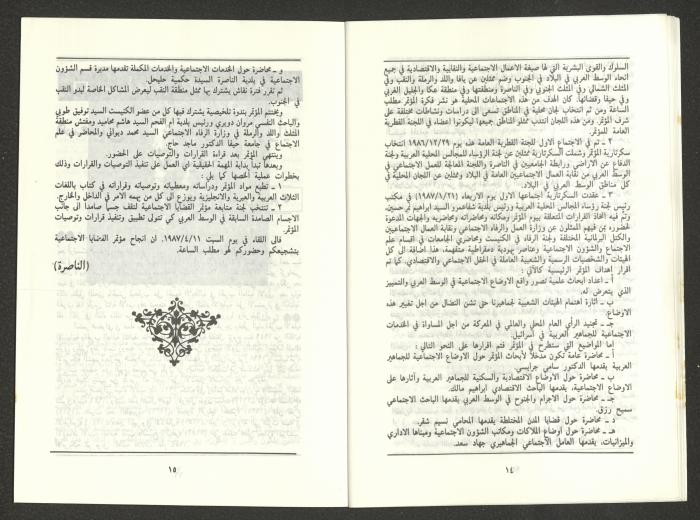 السلوك والقوى البشرية التي لها صيغة الاعمال الاجتماعية والنقابية والاقتصادية في جميع
انحاء الوسط العربي في البلاد في الجنوب وضم ممثلين عن يافا واللد والرملة والنقب وفي
المثلث الشمالي وفي المثلث الجنوبي وفي الناصرة ومنطقتها وفي منطقة عكا والجليل الغربي
وفي حيفا وقضائها. كان الهدف من هذه الاجتماعات المحلية هو نشر فكرة المؤتمر مطلب
الساعة ومن ثم انتخاب لجان محلية في المناطق تسعى الى دراسات ونشاطات مختلفة على
شرف المؤتمر. ومن هذه اللجان انتدب ممثلو المناطق جميعها ليكونوا اعضاء في اللجنة القطرية
العامة للمؤتمر.
٢ – تم في الاجتماع الاول للجنة القطرية العامة هذه يوم ١٩٨٦/١٢/٢٩ انتخاب
سكرتارية المؤتمر وشملت السكرتارية ممثلين عن لجنة الرؤساء للمجالس المحلية العربية ولجنة
الدفاع عن الاراضي ورابطة الجامعيين في الناصرة واللجنة المبادرة للعمل الاجتماعي في
الوسط العربي من نقابة العمال الاجتماعيين العامة في البلاد وممثلين عن اللجان المحلية في
كل مناطق الوسط العربي في البلاد.
٣ – عقدت السكرتارية اجتماعها الاول يوم الاربعاء (١٩٨٧/١/٢١) في مكتب
رئيس لجنة رؤساء المجالس المحلية العربية ورئيس بلدية شفاعمرو السيد ابراهيم نمر حسين،
وتم فيه اتخاذ القرارات المتعلقة بيوم المؤتمر ومكانه ومحاضراته ومحاضريه والجهات المدعوة
لحضوره بمن فيهم الممثلون عن وزارة العمل والرفاه الاجتماعي ونقابة العمال الاجتماعيين
والكتل البرلمانية المختلفة ولجنة الرفاه في الكنيست ومحاضري الجامعات في اقسام علم
الاجتماع والشؤون الاجتماعية وعناصر يهودية دمقراطية متفهمة، هذا اضافة الى كل
الهيئات والشخصيات الرسمية والشعبية العاملة في الحقل الاجتماعي والاقتصادي. كما تم
اقرار اهداف المؤتمر الرئيسية كالآتي:
أ – اعداد ابحاث علمية تصور واقع الاوضاع الاجتماعية في الوسط العربي والتمييز
الذي يتعرض له.
ب – اثارة اهتمام الهيئات الشعبية لجماهيرنا حتى تشن النضال من اجل تغيير هذه
الاوضاع.
جـ – تجنيد الرأي العام المحلي والعالمي في المعركة من اجل المساواة في الخدمات
الاجتماعية للجماهير العربية في اسرائيل.
إما المواضيع التي ستطرح في المؤتمر فتم اقرارها على النحو التالي:
أ – محاضرة عامة تكون مدخلاً لأبحاث المؤتمر حول الاوضاع الاجتماعية للجماهير
العربية يقدمها الدكتور سامي جرايسي.
ب – محاضرة حول الاوضاع الاقتصادية والسكنية للجماهير العربية وأثارها على
الاوضاع الاجتماعية، يقدمها الباحث الاقتصادي ابراهيم مالك.
جـ – محاضرة حول الاجرام والجنوح في الوسط العربي يقدمها الباحث الاجتماعي
سميح رزق.
د – محاضرة حول قضايا المدن المختلطة يقدمها المحامي نسيم شقر.
هـ – محاضرة حول أوضاع الملاكات ومكاتب الشؤون الاجتماعية ومبناها الاداري
والميزانيات، يقدمها العامل الاجتماعي الجماهيري جهاد سعد.
١٤
و – محاضرة حول الخدمات الاجتماعية والخدمات المكملة تقدمها مديرة قسم الشؤون
الاجتماعية في بلدية الناصرة السيدة حكمية حليحل.
ثم تقرر فترة نقاش يشترك بها ممثل منطقة النقب ليعرض المشاكل الخاصة لبدو النقب
في الجنوب.
ويختتم المؤتمر بندوة تلخيصية يشترك فيها كل من عضو الكنيست السيد توفيق طوبي
والباحث النفسي مروان دويري ورئيس بلدية ام الفحم السيد هاشم محاميد ومفتش منطقة
المثلث واللد والرملة في وزارة الرفاه الاجتماعي السيد محمد ديواني والمحاضر في علم
الاجتماع في جامعة حيفا الدكتور ماجد حاج.
وينتهي المؤتمر بعد قراءة القرارات والتوصيات على الحضور.
وبعدها تبدأ بداية المهمة الحقيقية اي العمل على تنفيذ التوصيات والقرارات وذلك
بخطوات عملية الخصها كما يلي:
١ – تطبع مواد المؤتمر ودراساته ومعطياته وتوصياته وقراراته في كتاب باللغات
الثلاث العربية والعبرية والانجليزية ويوزع الى كل من يهمه الامر في الداخل والخارج.
٢ – تنتخب لجنة متابعة مؤتمر القضايا الاجتماعية لتقف جسماً صامداً الى جانب
الاجسام الصامدة السابقة في الوسط العربي كي تتولى تطبيق وتنفيذ قرارات وتوصيات
المؤتمر.
فالى اللقاء في يوم السبت ١٩٨٧/٤/١١. ان انجاح مؤتمر القضايا الاجتماعية
بتشجيعكم وحضوركم لهو مطلب الساعة.
(الناصرة)
١٥